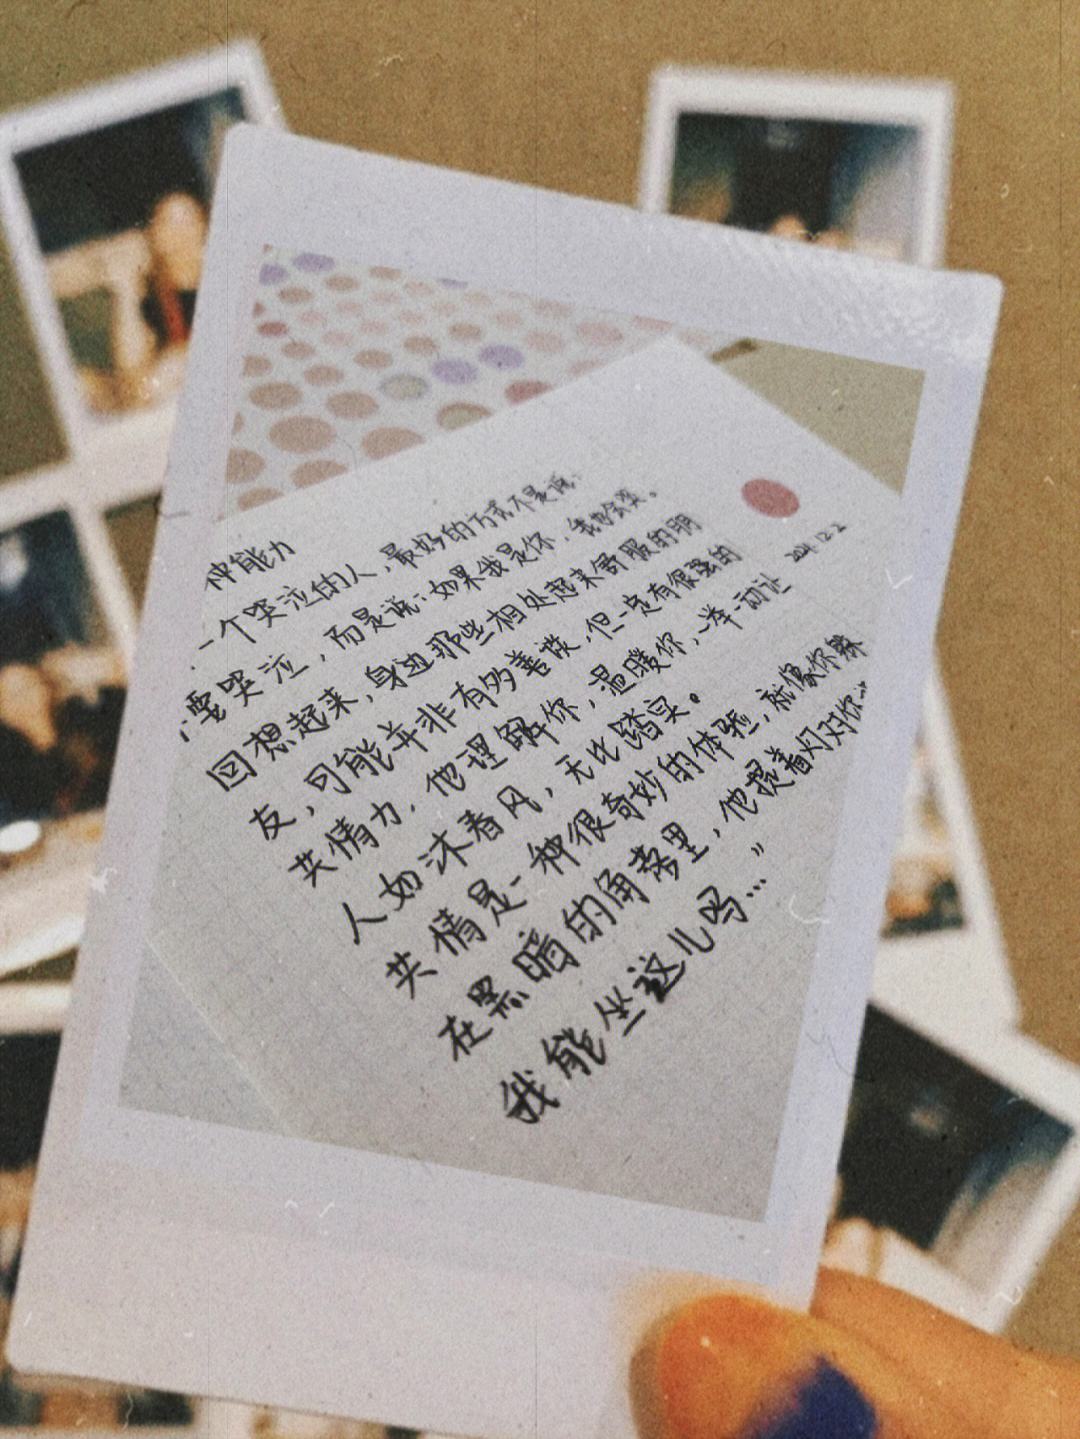 种能力
一个哭泣的人，最好的方式不是说：
要哭泣，而是说：如果我是你，我也会哭。
回想起来，身边那些相处起来舒服的朋
友，可能并非有多善谈，但一定有很强的
共情力．他理解你，温暖你，一举一动让
人如沐春风，无比踏实。
共情是一种很奇妙的体验，就像你躲
在黑暗的角落里，他提着灯对你说：“
我能坐这儿吗…”
2021.12.2